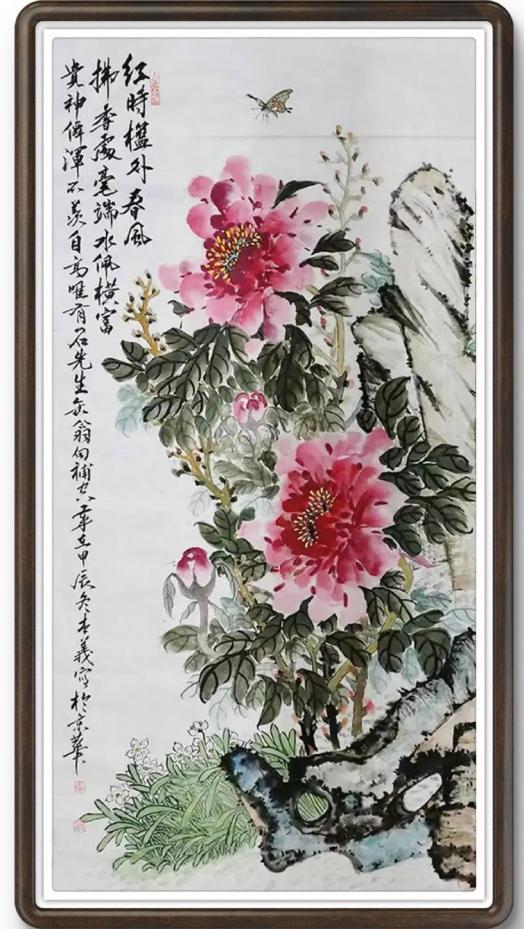 紅時檻外春風
拂香處毫端水佩橫富
貴神僊渾不羨自高唯有石先生缶翁句歲在甲辰冬義寫於京華